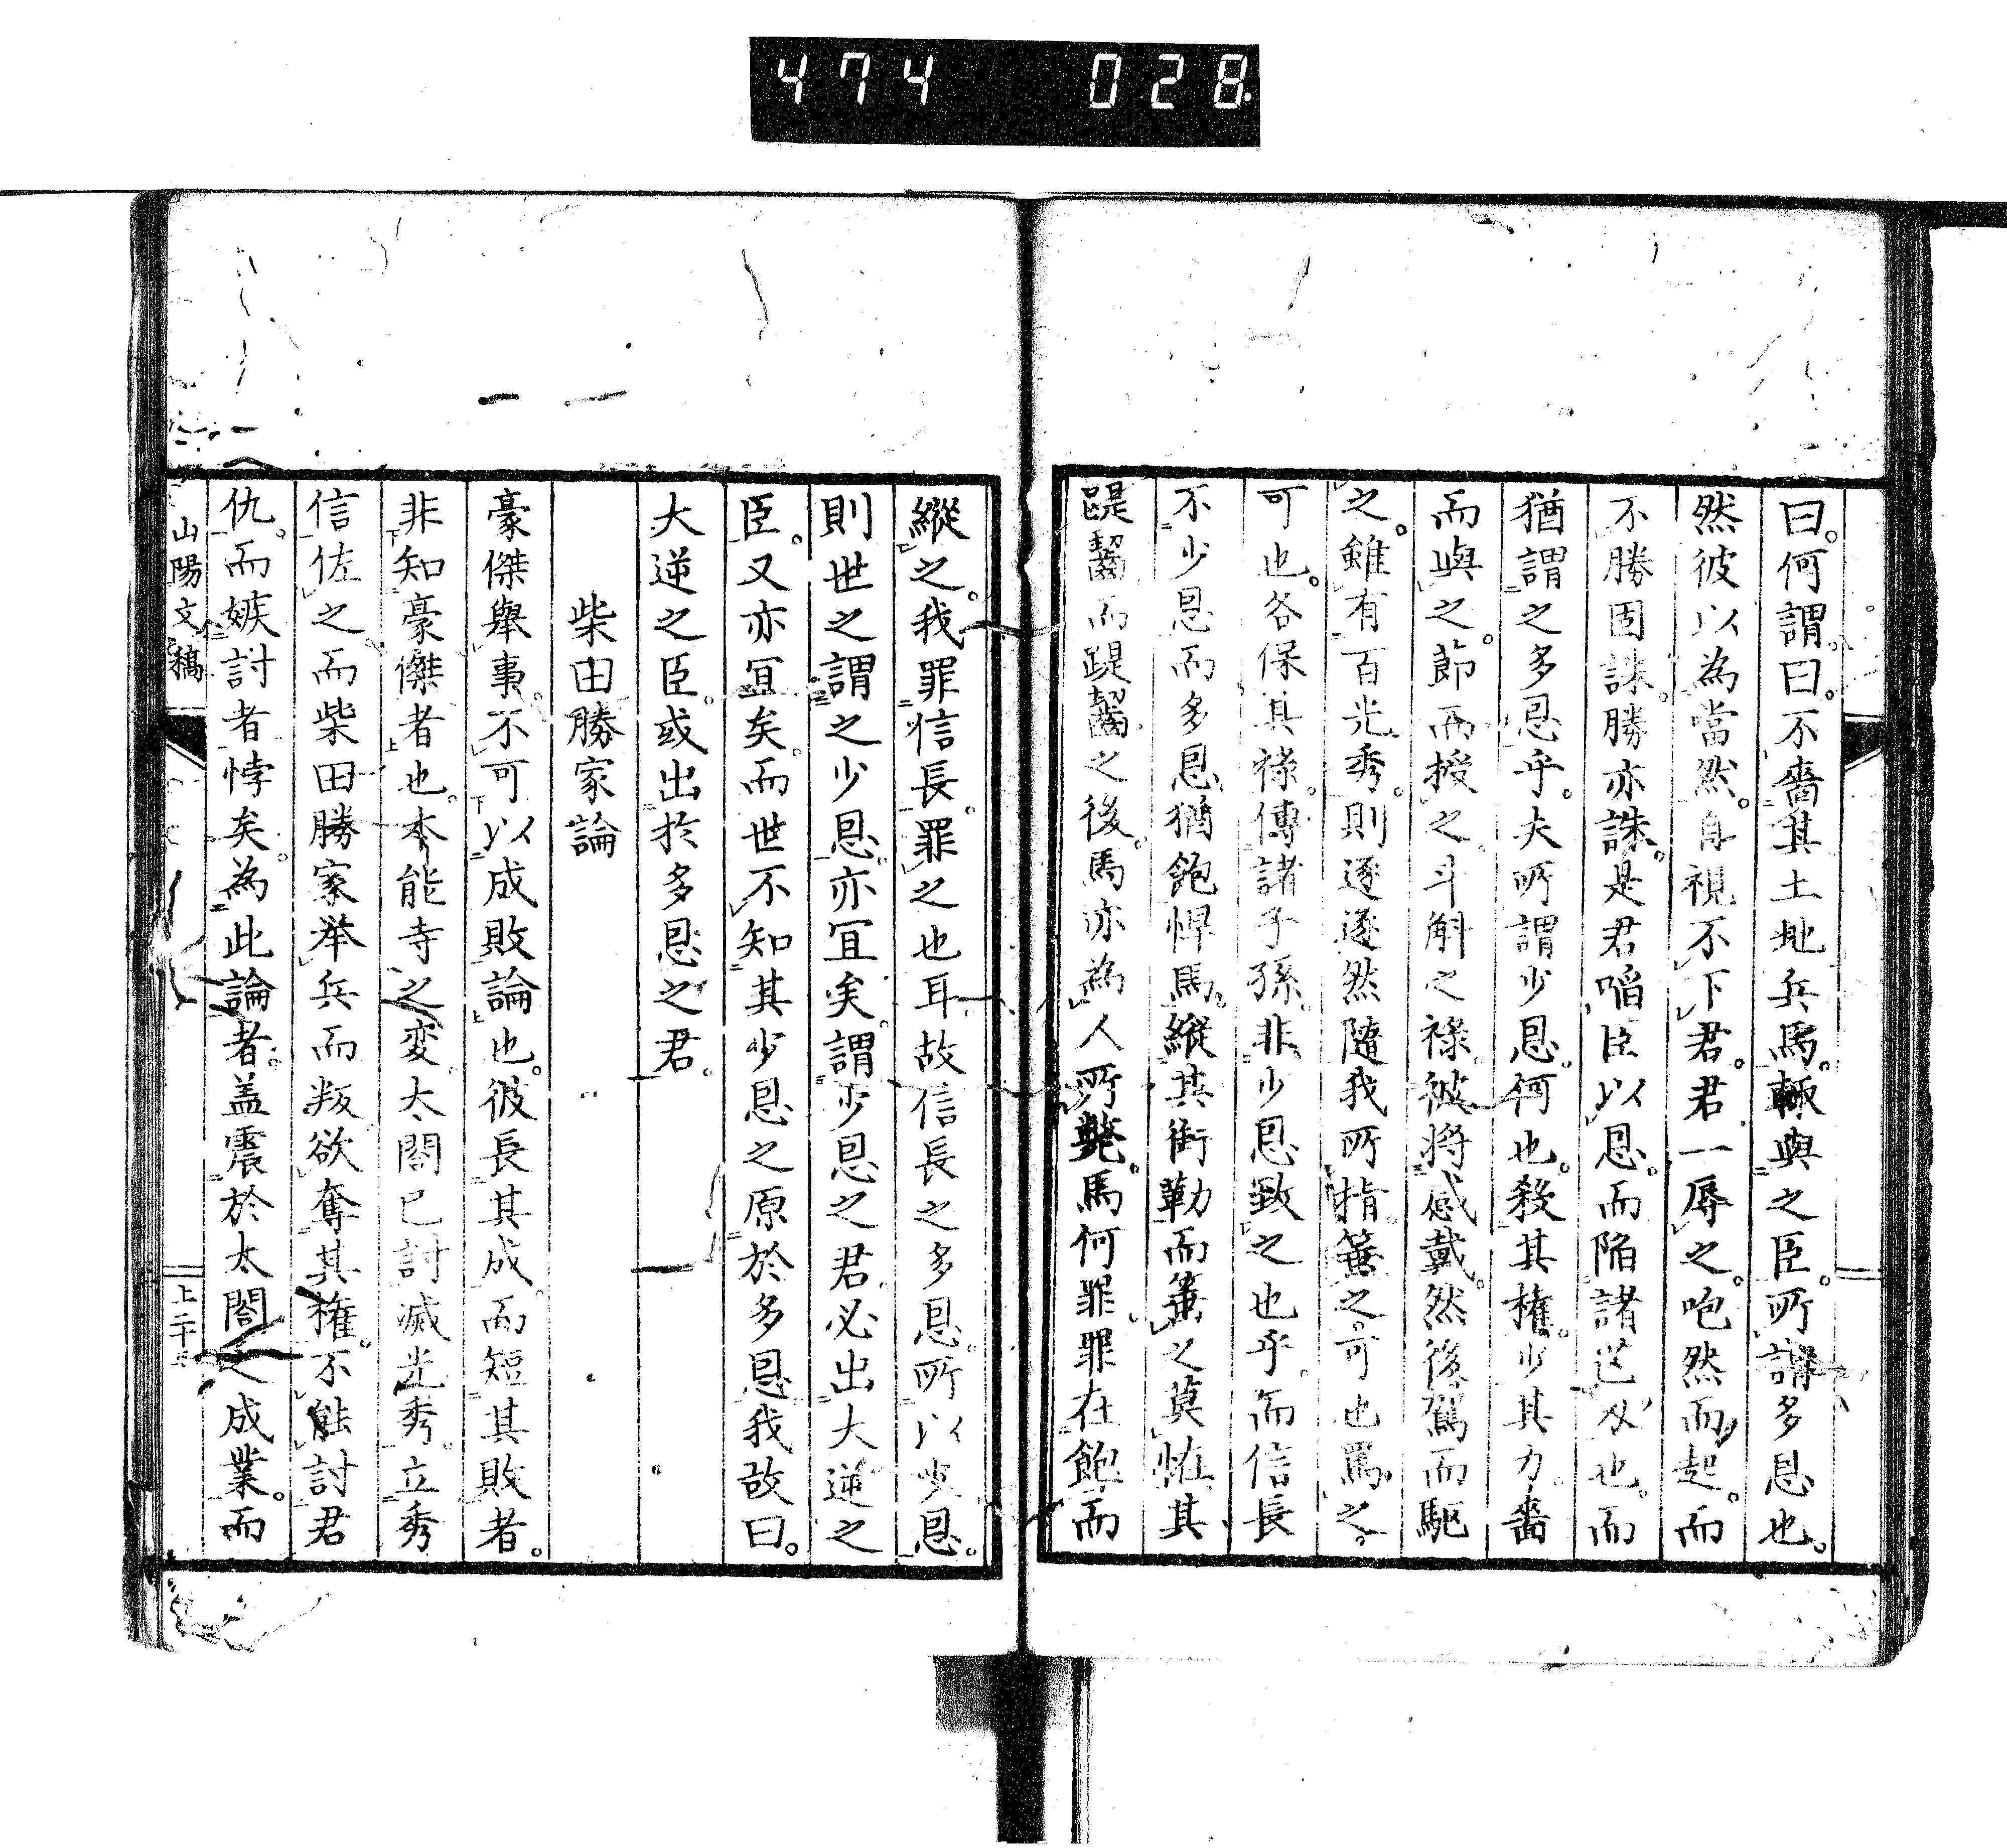 474 028
曰。何謂。曰。不嗇其土地兵馬。輒與之臣。所謂多恩也。
然彼以為當然。自視不下君。君一辱之。咆然而起。而
不勝固誅。勝亦誅。是君啗臣以恩。而陷諸逆也。而
猶謂之多恩乎。夫所謂少恩。何也。殺其權。少其力。嗇
而與之。節而授之。斗斛之祿。彼將感戴。然後駕而驅
之。雖有百光秀。則逐逐然隨我所指。箠之。可也。罵之。
可也。各保其祿。傳諸子孫。非少恩致之也乎。而信長
不少恩而多恩。猶飽悍馬。縱其銜勒而箠之。莫怪其
踶齧。而踶齧之後。馬亦為人所斃。馬何罪。罪在飽而
縱之。我罪信長。罪之也耳。故信長之多恩。所以少恩。
則世之謂之少恩。亦宜矣。謂少恩之君。必出大逆之
臣。又亦宜矣。而世不知其少恩之原於多恩。我故曰。
大逆之臣。或出於多恩之君。
柴田勝家論
豪傑舉事。不可以成敗論也。彼長其成。而短其敗者。
非知豪傑者也。本能寺之変。太閤已討滅光秀。立秀
信佐之。而柴田勝家举兵而叛。欲奪其權。不能討君
仇。而嫉討者悖矣。為此論者。盖震於太閤之成業。而
山陽文稿
上二十